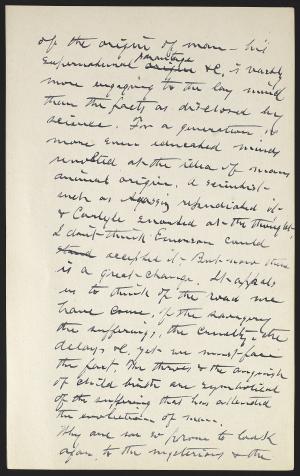 of the origin of man – his
supernatural origin &c, is vastly
more engaging to the lay mind
than the facts as disclosed by
science. For a generation, or
more even educated minds
revolted at the idea of man's
animal origin. A scientist
such as Agassiz repudiated it
& Carlyle snorted at the thought.
I don't think Emerson could
stand accepted it. But now there
is a great change. It appals
us to think of the road we
have come, of the savagery
the suffering, the cruelty, the
delays &c, yet we must face
the fact. The throes & the anguish
of child birth are symbolical
of the suffering that has attended
the evolution of man.
Why are we so prone to look
again to the mysterious & the